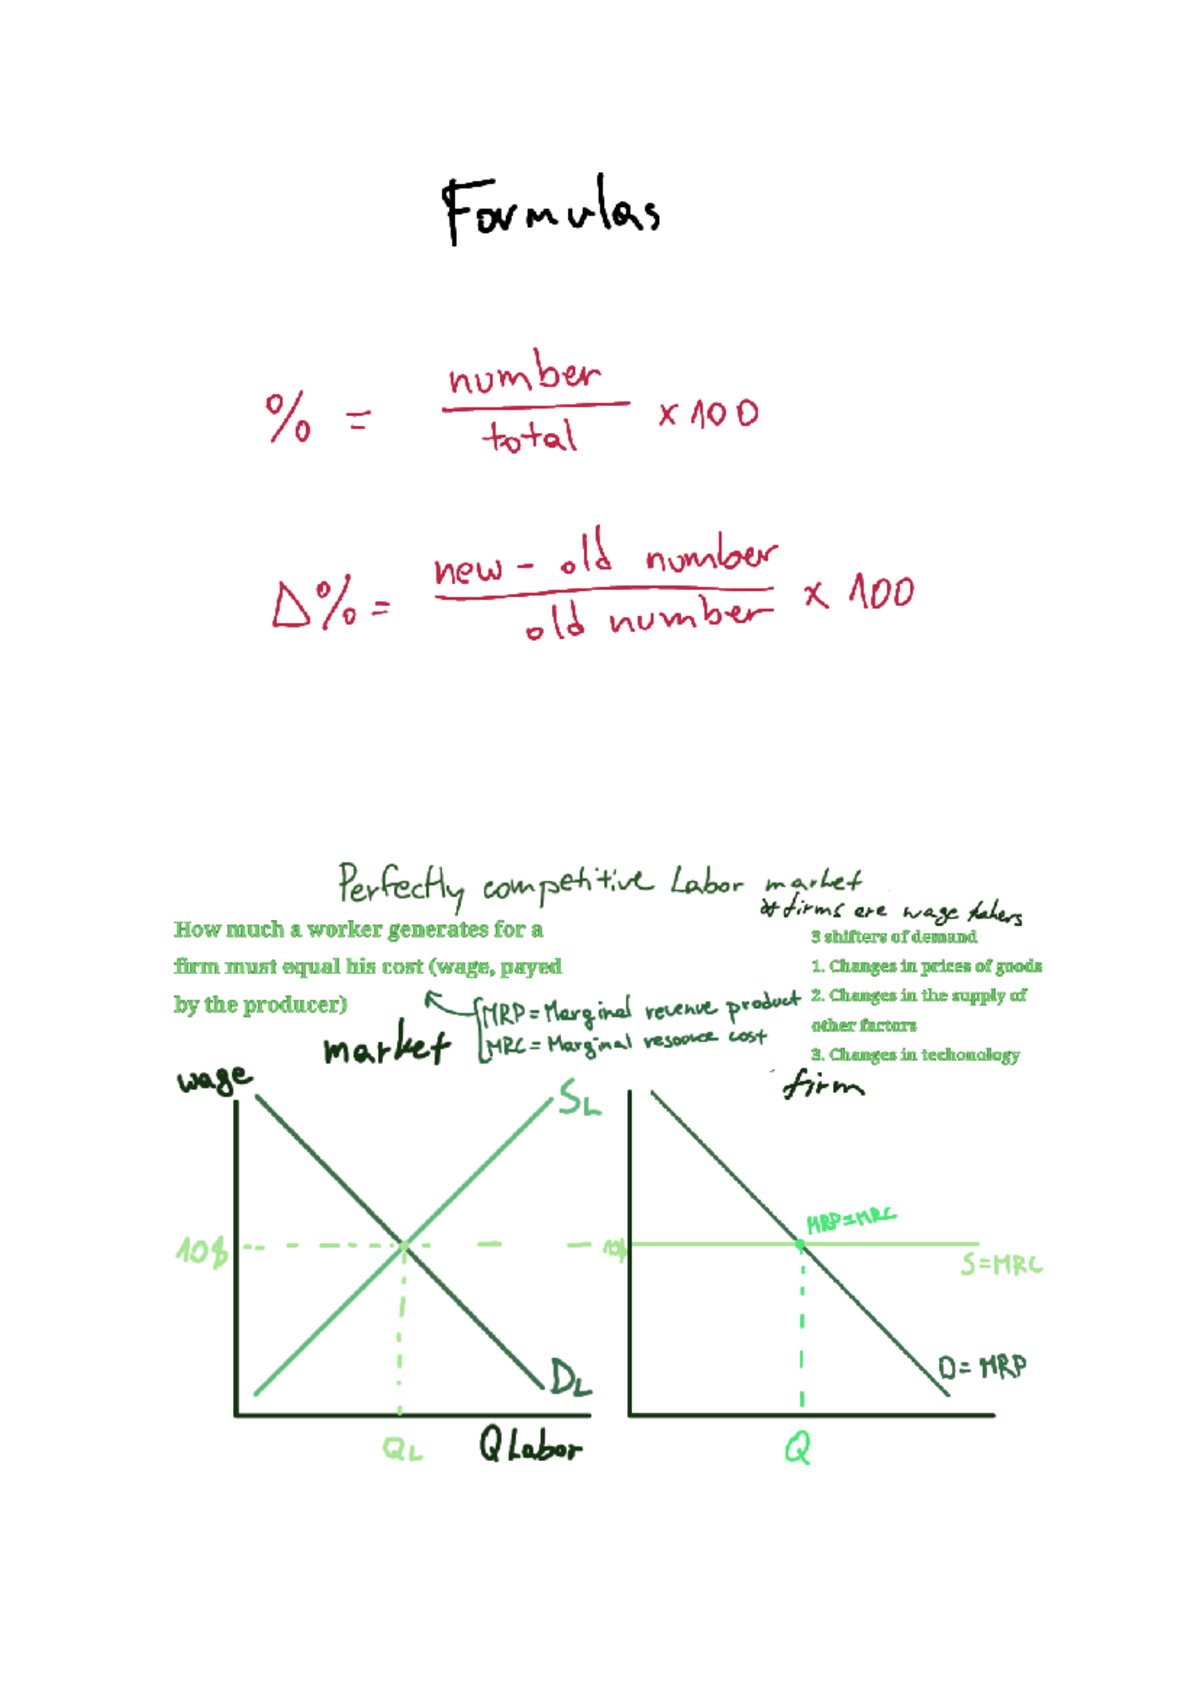 Formulas
% = number / total x 100
Δ% = new - old number / old number x 100
Perfectly competitive Labor market
* firms are wage takers
How much a worker generates for a
firm must equal his cost (wage, payed
by the producer)
MRP = Marginal revenue product
MRC = Marginal resource cost
3 shifters of demand
1. Changes in prices of goods
2. Changes in the supply of
other factors
3. Changes in techonology
market
wage
SL
10$
DL
QL
Q Labor
firm
MRP=MRC
10$
S=MRC
D=MRP
Q